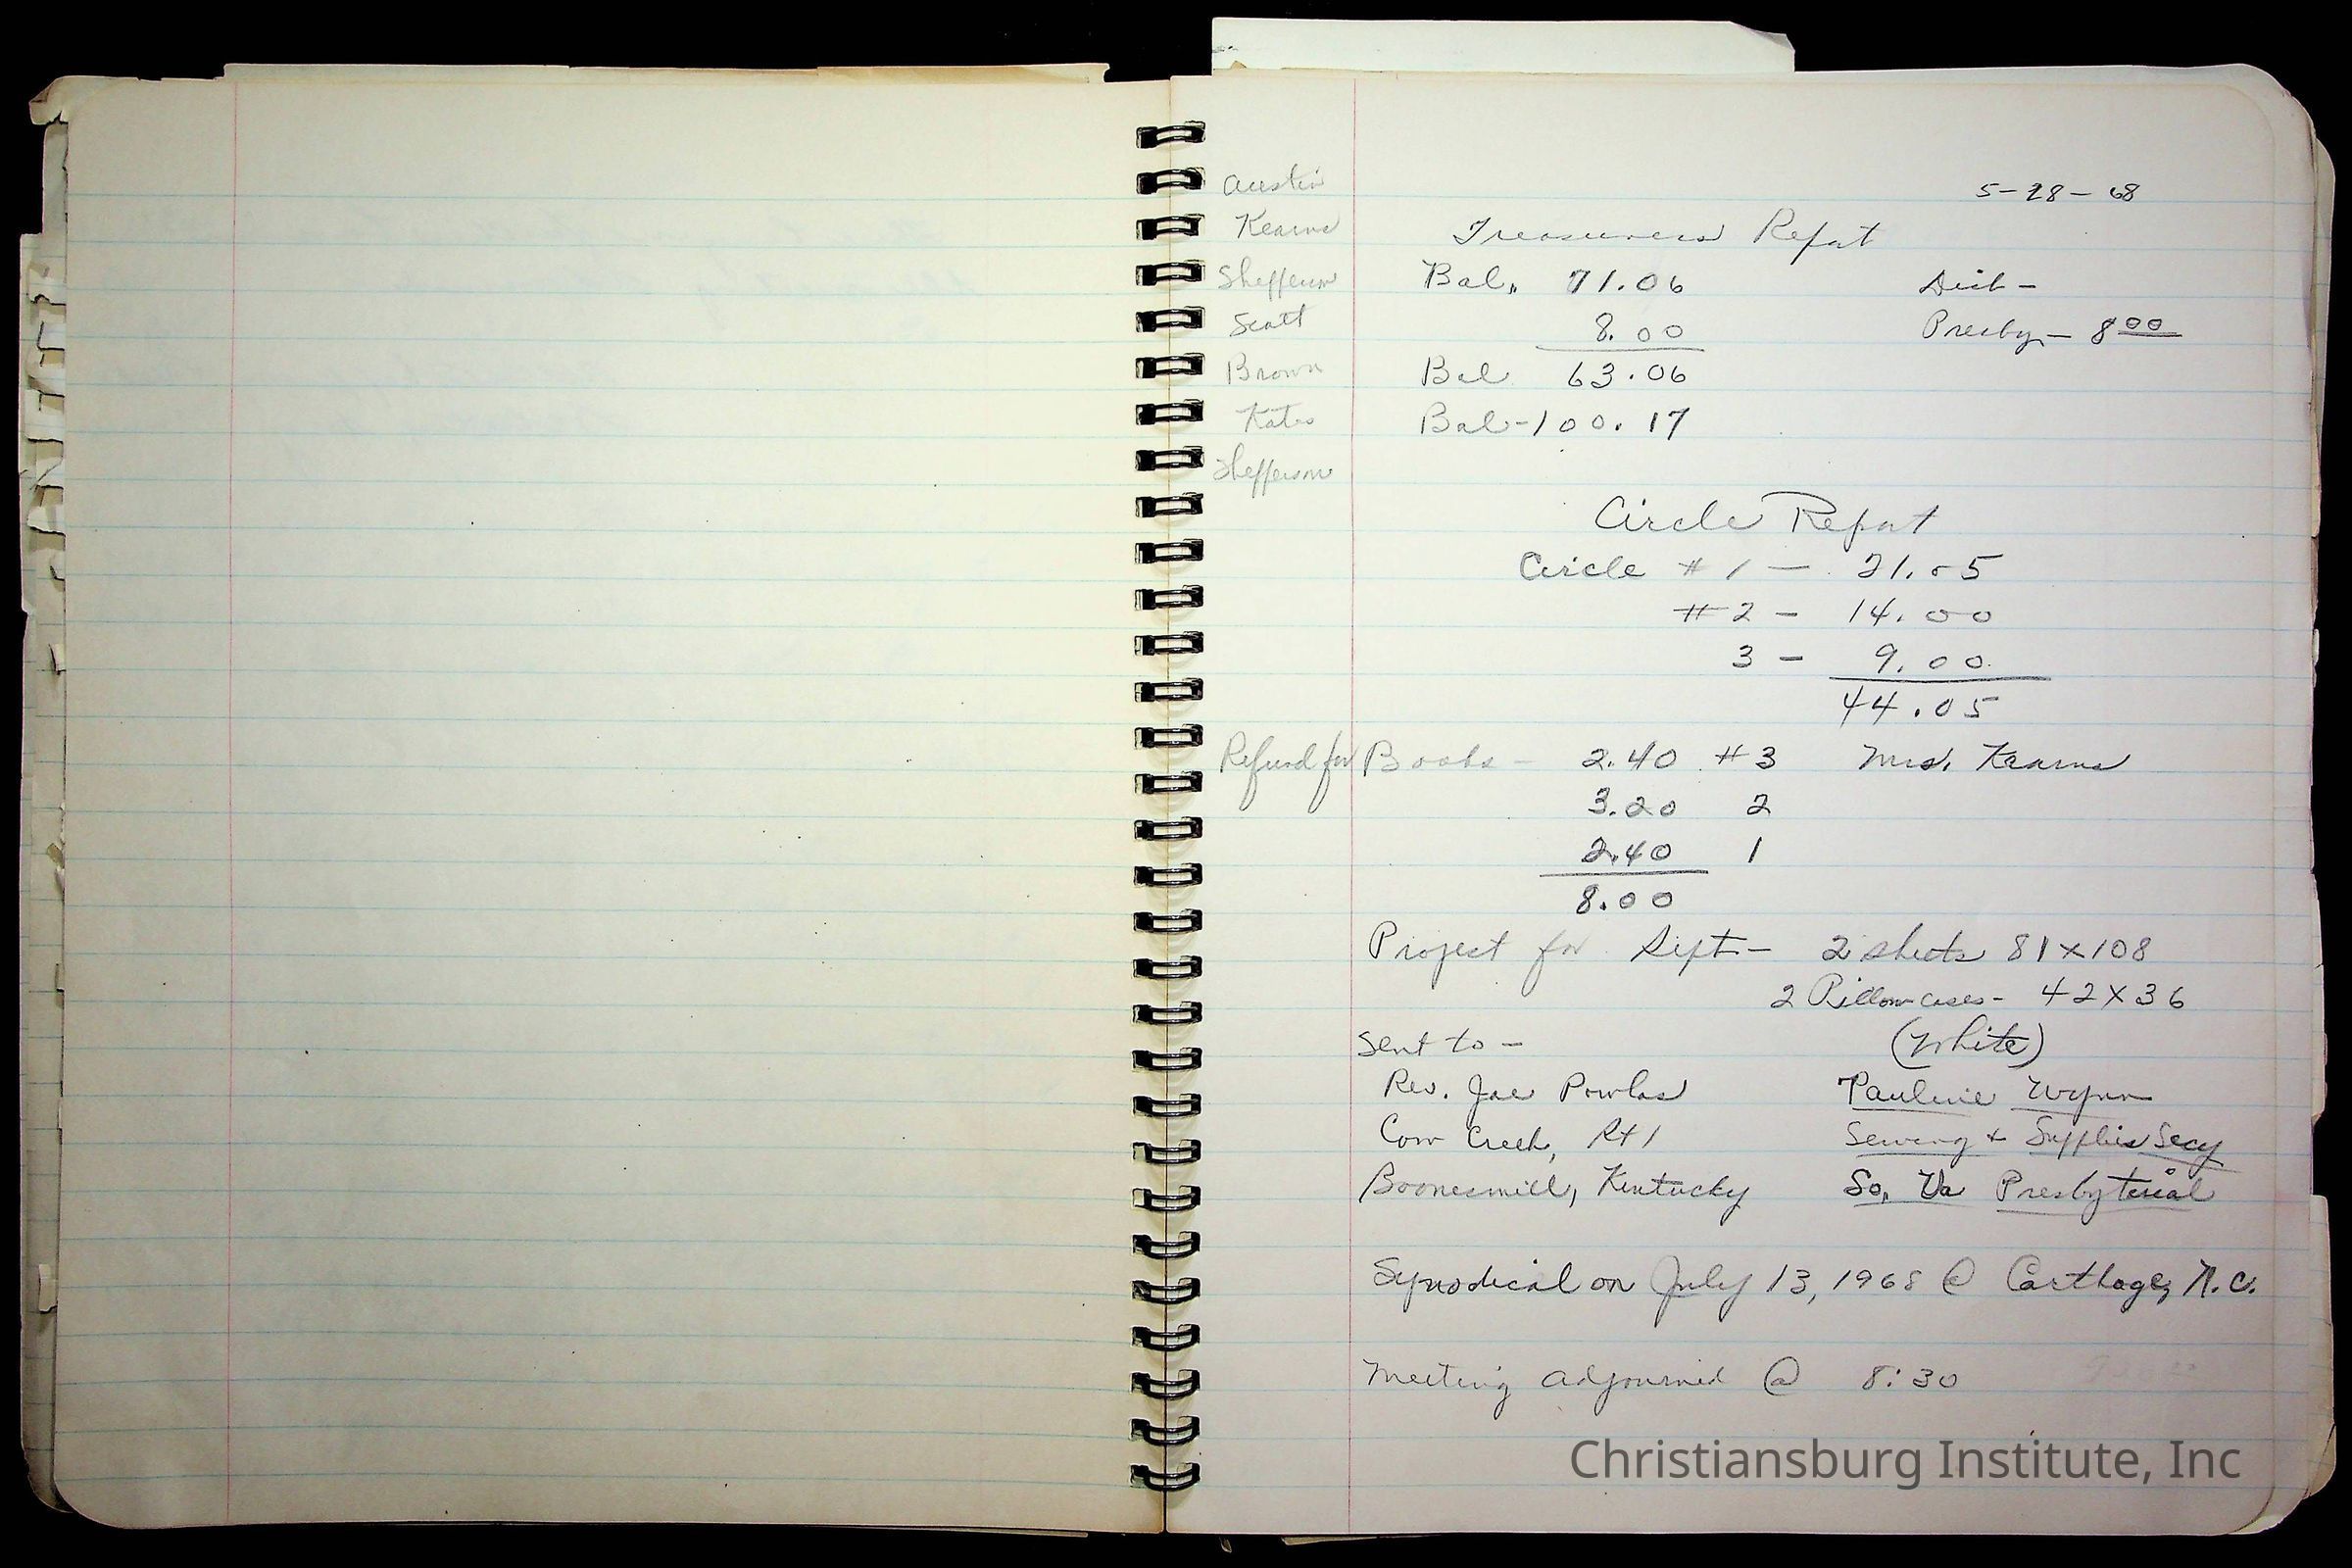 5-28-68
Austin
Kearns
Treasurers Report
Shefferson
Bal. 71.06 Disb-
Scott
8.00 Presby- 8 00
Brown
Bal 63.06
Kates
Bal-100.17
Shefferson
Circle Report
Circle #1 - 21.05
#2 - 14.00
3 - 9.00
44.05
Refund for Books - 2.40 #3 Mrs. Kearns
3.20 2
2.40 1
8.00
Project for Sept- 2 sheets 81x108
2 Pillow cases- 42X36
Sent to - (White)
Rev. Joe Powlas Pauline Wynn
Cow Creek, Rt 1 Sewing + Supplies Secy
Boonesmill, Kentucky So. Va Presbyterial
Synodical on July 13, 1968 @ Carthage, N.C.
Meeting adjourned @ 8:30
Christiansburg Institute, Inc